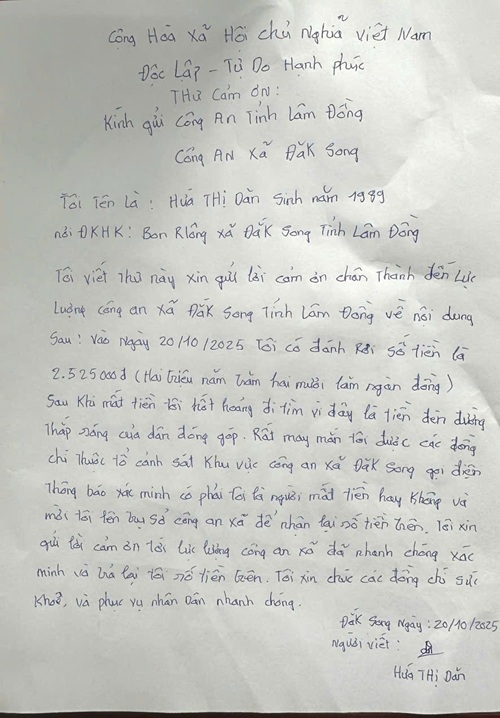 Cộng Hòa Xã Hội chủ Nghĩa Việt Nam
Độc Lập - Tự Do Hạnh phúc
THƯ Cảm ƠN:
Kính gửi Công AN Tỉnh Lâm Đồng
Công AN Xã Đắk Song
Tôi Tên Là : Hứa THị Dần Sinh năm 1989
nơi ĐKHK: Bon Rlông xã Đắk Song Tỉnh Lâm Đồng
Tôi viết thư này xin gửi lời cảm ơn chân Thành đến Lực
Lượng công an xã Đắk Song Tỉnh Lâm Đồng về nội dung
Sau : vào ngày 20/10/2025 Tôi có đánh Rơi Số tiền là
2.525000đ (Hai triệu năm trăm hai mươi lăm ngàn đồng)
Sau khi mất tiền tôi hốt hoảng đi tìm vì đây là tiền đèn đường
thắp sáng của dân đóng góp. Rất may mắn tôi được các đồng
chí thuộc tổ cảnh sát khu vực công an xã Đắk Song gọi điện
Thông báo xác minh có phải Tôi là người mất tiền hay không và
mời tôi lên trụ sở công an xã để nhận lại số tiền trên. Tôi xin
gửi lời cảm ơn tới lực lượng công an xã đã nhanh chóng xác
minh và trả lại tôi số tiền trên. Tôi xin chúc các đồng chí sức
khoẻ, và phục vụ nhân Dân nhanh chóng.
Đắk Song Ngày : 20/10/2025
Người viết :
Hứa THị Dần